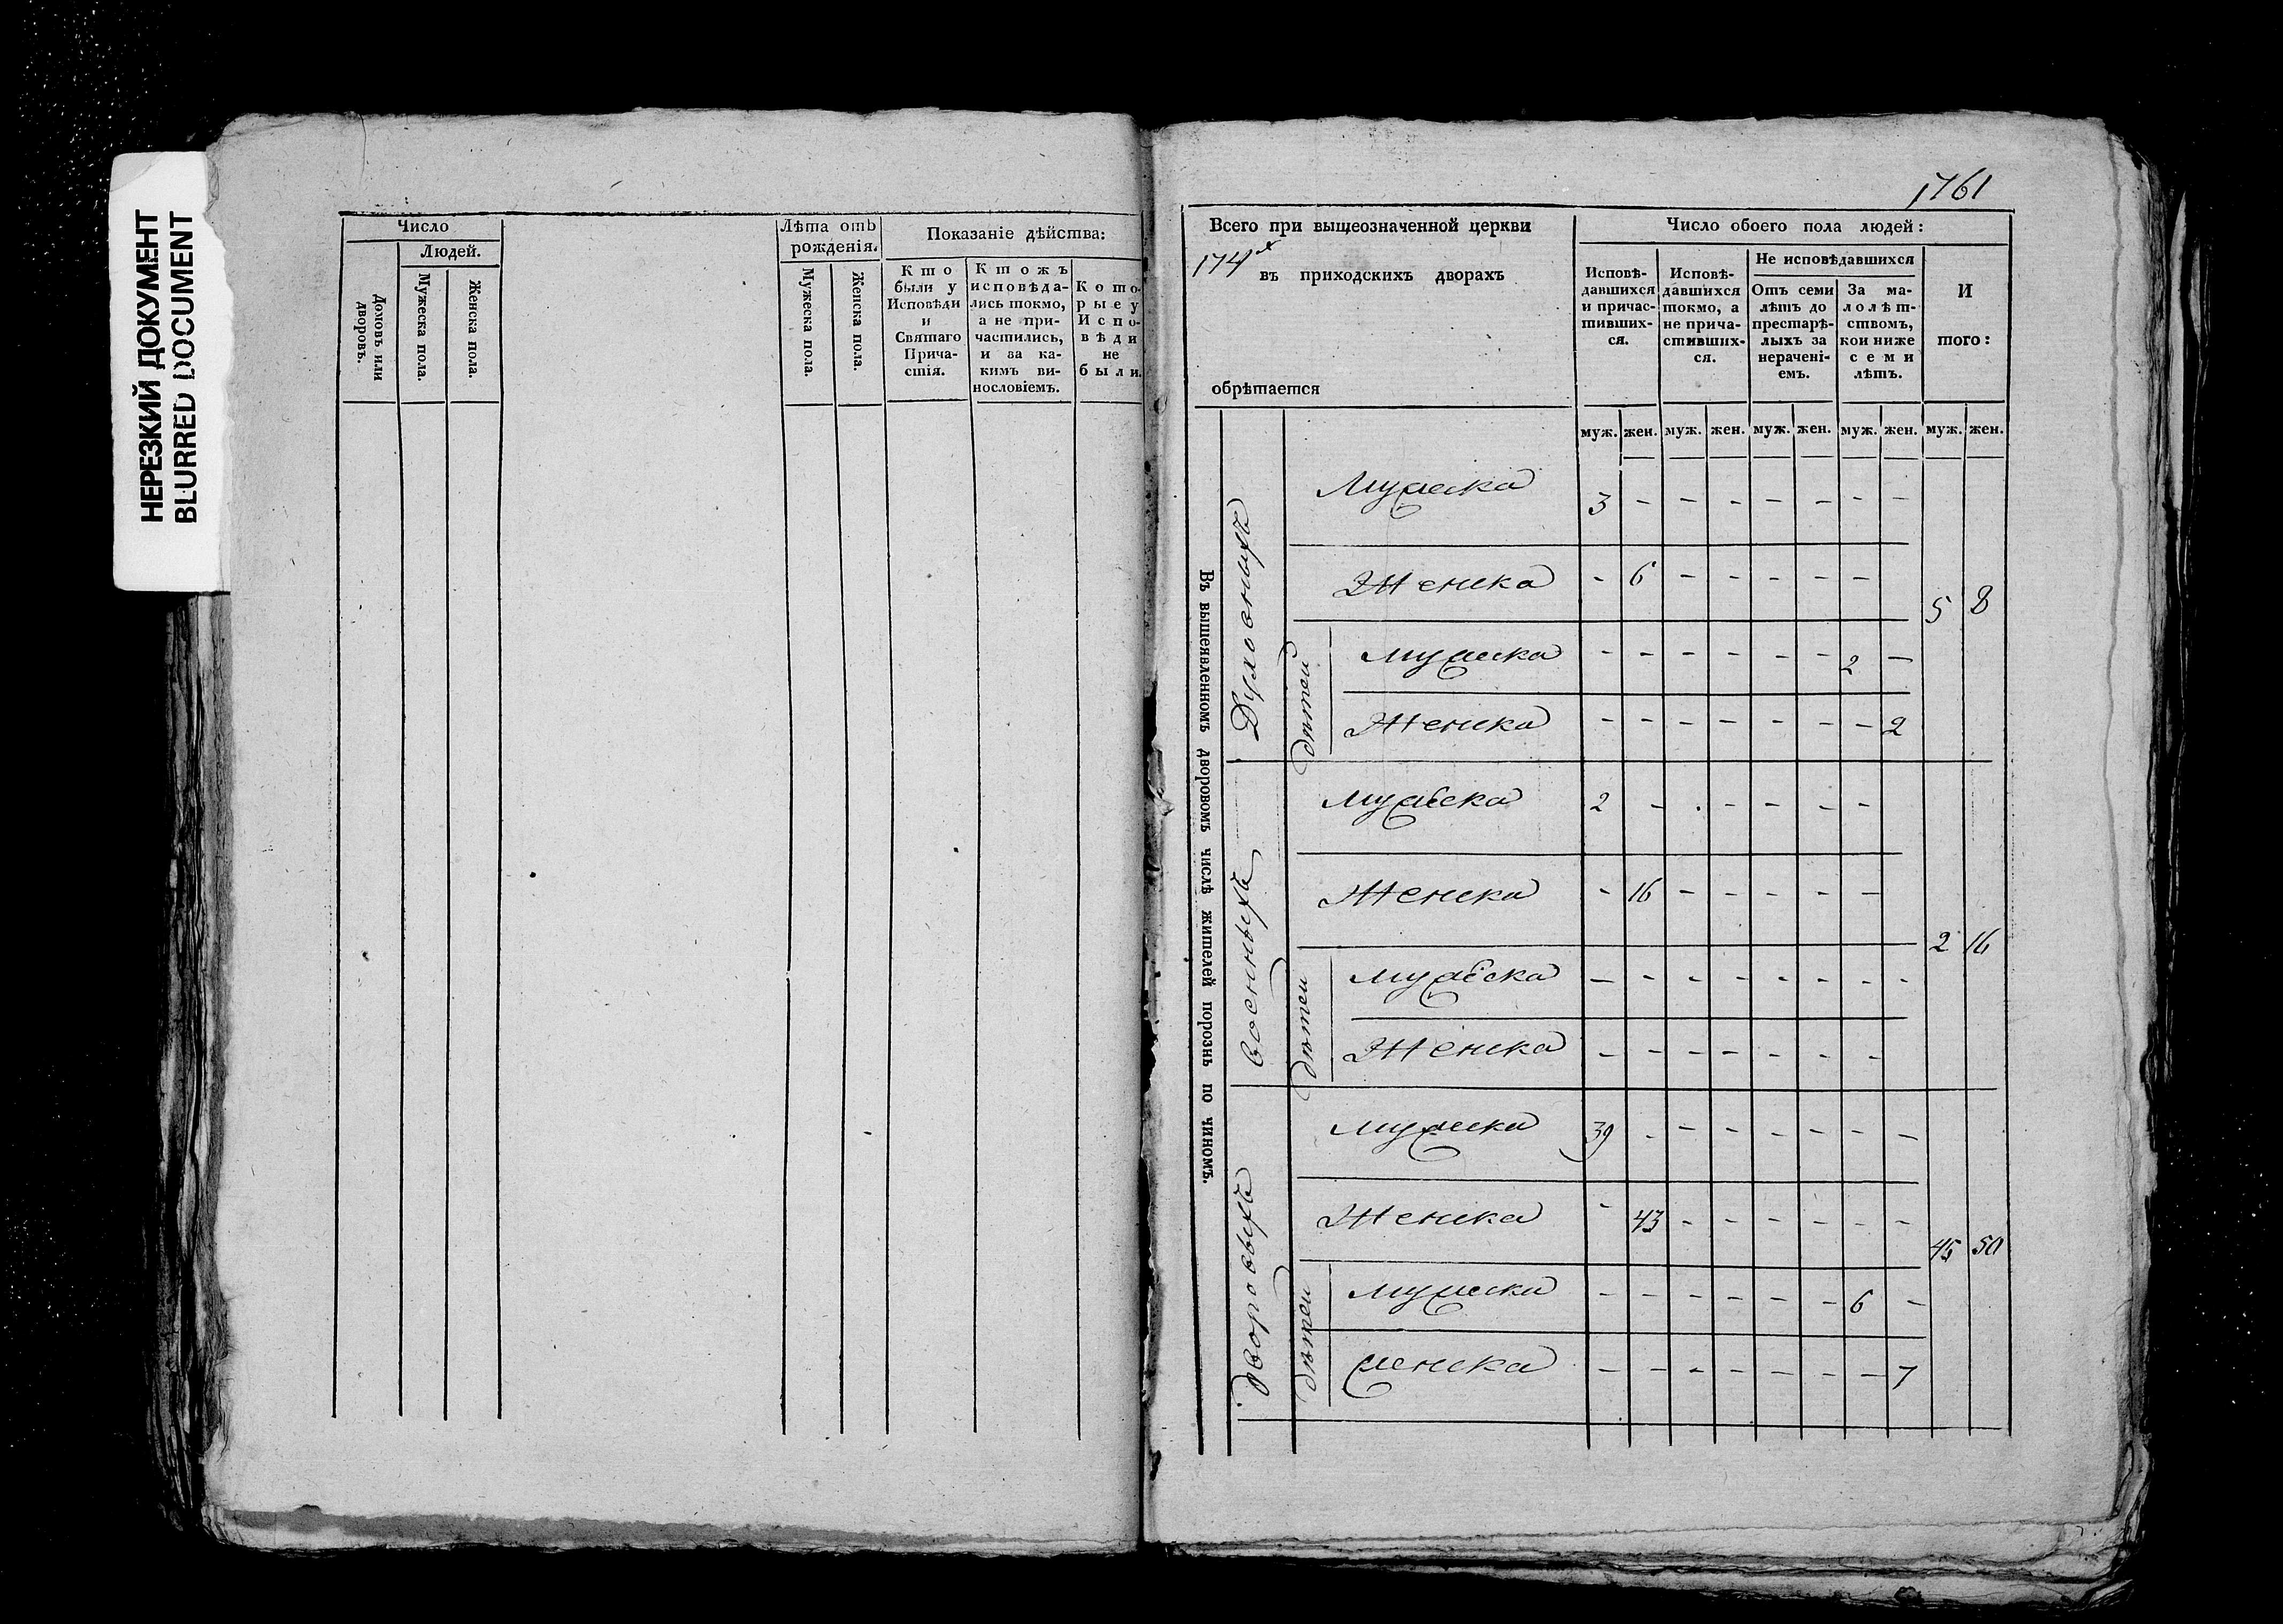 НЕРЕЗКИЙ ДОКУМЕНТ
BLURRED DOCUMENT
Число
Людей.
Домовъ или дворовъ.
Мужеска пола.
Женска пола.
Лѣта отъ рожденія.
Мужеска пола.
Женска пола.
Показаніе дѣйства:
Кто
были у
Исповѣди
и
Святаго
Прича-
стія.
Ктожъ
исповѣда-
лись токмо,
а не при-
частились,
и за ка-
кимъ ви-
нословіемъ.
Кото-
рые у
Испо-
вѣди
не
были.
1761
Всего при вышеозначенной церкви
174хъ въ приходскихъ дворахъ
обрѣтается
Число обоего пола людей:
Исповѣ-
давшихся
и причас-
тивших-
ся.
Исповѣ-
давшихся
токмо, а
не прича-
стивших-
ся.
Не исповѣдавшихся
Отъ семи
лѣтъ до
престарѣ-
лыхъ за
нерачені-
емъ.
За ма-
лолѣт-
ствомъ,
кои ниже
семи
лѣтъ.
И
того:
муж. жен. муж. жен. муж. жен. муж. жен. муж. жен.
Въ вышеявленномъ дворовомъ числѣ жителей порознь по чиномъ.
Духовныхъ
Мужеска 3 - - - - - - -
Женска - 6 - - - - -
5 8
дѣтей
Мужеска - - - - - - 2 -
Женска - - - - - - - 2
Военныхъ
Мужеска 2 - - - - - -
Женска - 16 - - - - -
2 16
дѣтей
Мужеска - - - - - - - -
Женска - - - - - - -
Дворовыхъ
Мужеска 39 - - - - - - -
Женска - 43 - - - - - -
45 50
дѣтей
Мужеска - - - - - - 6 -
Женска - - - - - - - 7